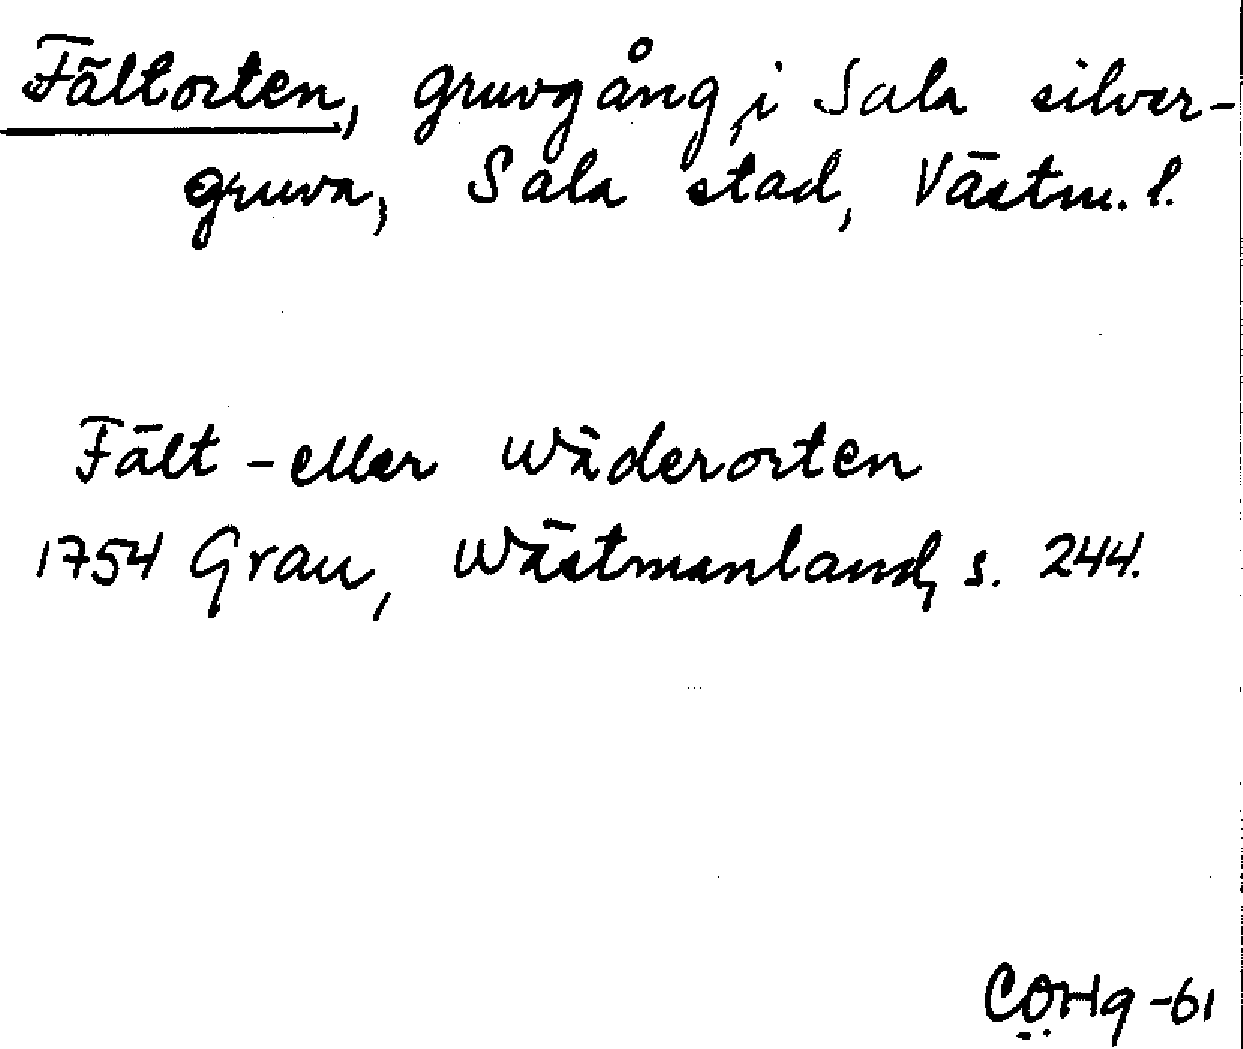 Fältorten, gruvgång i Sala silver-
gruva, Sala stad, Västm. l.
Fält - eller Wäderorten
1754 Grau, Wästmanland, s. 244.
COHg -61